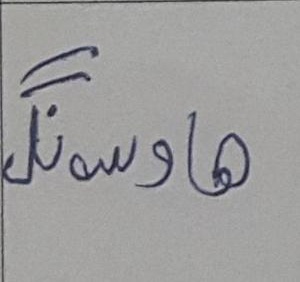 هاوسنگ